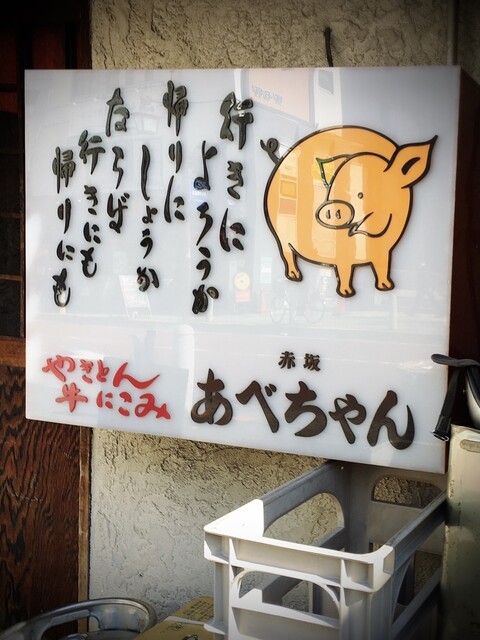 行きに
よろうか
帰りに
しょうか
ならば
行きにも
帰りにも
赤坂
あべちゃん
やきとん
牛にこみ